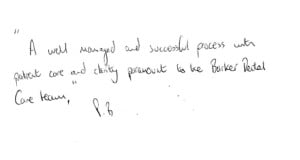 "
A well managed and successful process with
patient care and clarity paramount to the Barker Dental
Care team,"
P.B